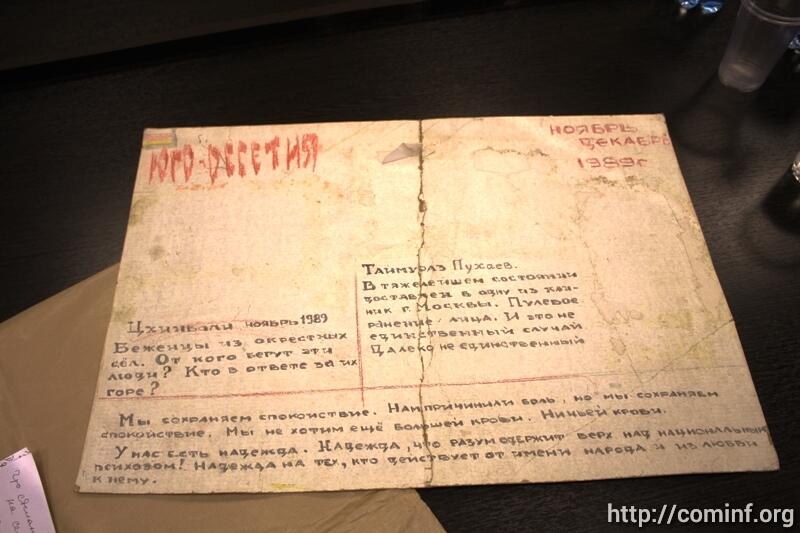 ЮГО-ОСЕТИЯ
НОЯБРЬ
ДЕКАБРЬ
1989г
Цхинвали ноябрь 1989
Беженцы из окрестных
сёл. От кого бегут эти
люди? Кто в ответе за их
горе?
Таймураз Пухаев.
В тяжелейшем состоянии
доставлен в одну из кли-
ник г. Москвы. Пулевое
ранение лица. И это не
единственный случай
Далеко не единственный
Мы сохраняем спокойствие. Нам причинили боль, но мы сохраняем
спокойствие. Мы не хотим ещё большей крови. Ничьей крови.
У нас есть надежда. Надежда, что разум одержит верх над национальным
психозом! Надежда на тех, кто действует от имени народа и из любви
к нему.
на
http://cominf.org